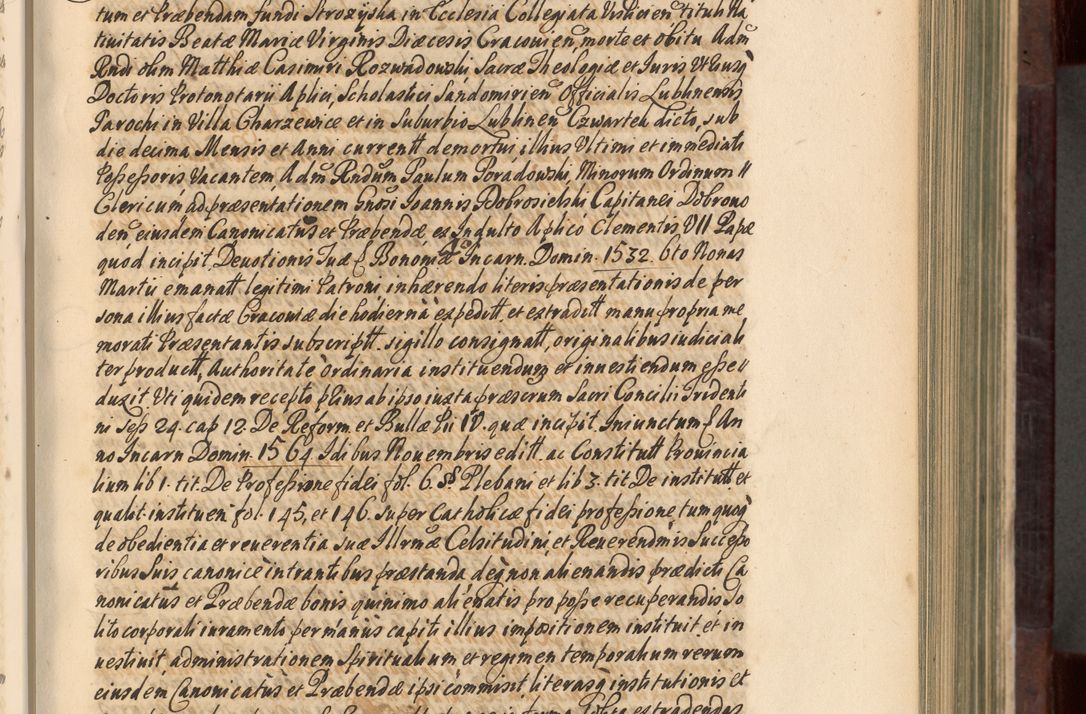 tum et Præbendam fundi Strozyska in Ecclesia Collegiata Vislicien tituli Na
tiuitatis Beatæ Mariæ Virginis Diæcesis Cracouien morte et obitu Adm
Rndi olim Matthiæ Casimiri Rozwadowski Sacræ Theologiæ et Iuris Vtriusq
Doctoris Protonotarii Aplici, Scholastici Sandomirien Officialis Lublinensis
Parochi in Villa Charzewice et in Suburbio Lublinen Czwartek dicto, sub
die decima Mensis et Anni currentt demortui illius Vltimi et immediati
Possessoris Vacantem Adm Rndum Paulum Poradowski, Minorum Ordinum //
Clericum ad præsentationem Gnosi Ioannis Dobrosielski Capitanei Dobrono
den eiusdem Canonicatus et Præbendæ ex Indulto Aplico Clementis VII Papæ
quod incipit, Deuotionis Tuæ Bononiæ Incarn. Domin. 1532. 6to Nonas
Martii emanatt legitimi Patroni inhærendo literis præsentationis de per
sona illius factæ Cracouiæ die hodierna expeditt et extraditt manu propria me
morati Præsentantis subscriptt. sigillo consignatt, originalibus iudiciali
ter productt, Authoritate ordinaria instituendum et inuestiendum esse //
duxit Vti quidem recepto prius ab ipso iuxta præscrum Sacri Concilii Tridenti
ni Sess 24. cap 12. De Reform et Bullæ Pii IV. quæ incipit, Iniunctum An
no Incarn Domin. 1564 Idibus Nouembris editt. ac Constitutt Prouincia
lium lib 1. tit. De Professione fidei fol. 6. § Plebani et lib 3. tit De institutt et
qualit. instituen fol. 145, et 146. super Catholicæ fidei professione tum quoq
de obedientia et reuerentia suæ Illrmæ Celsitudini, et Reuerendmis Successo
ribus Suis canonice intrantibus præstanda deq non alienandis prædicti Ca
nonicatus et Præbendæ bonis quinimo alienatis pro posse recuperandis So
lito corporali iuramento per manus capiti illius impositionem instituit et in
uestiuit administrationem Spiritualium et regimen temporalium rerum
eiusdem Canonicatus et Præbendæ ipsi commisit literasq institutionis et
extradendas